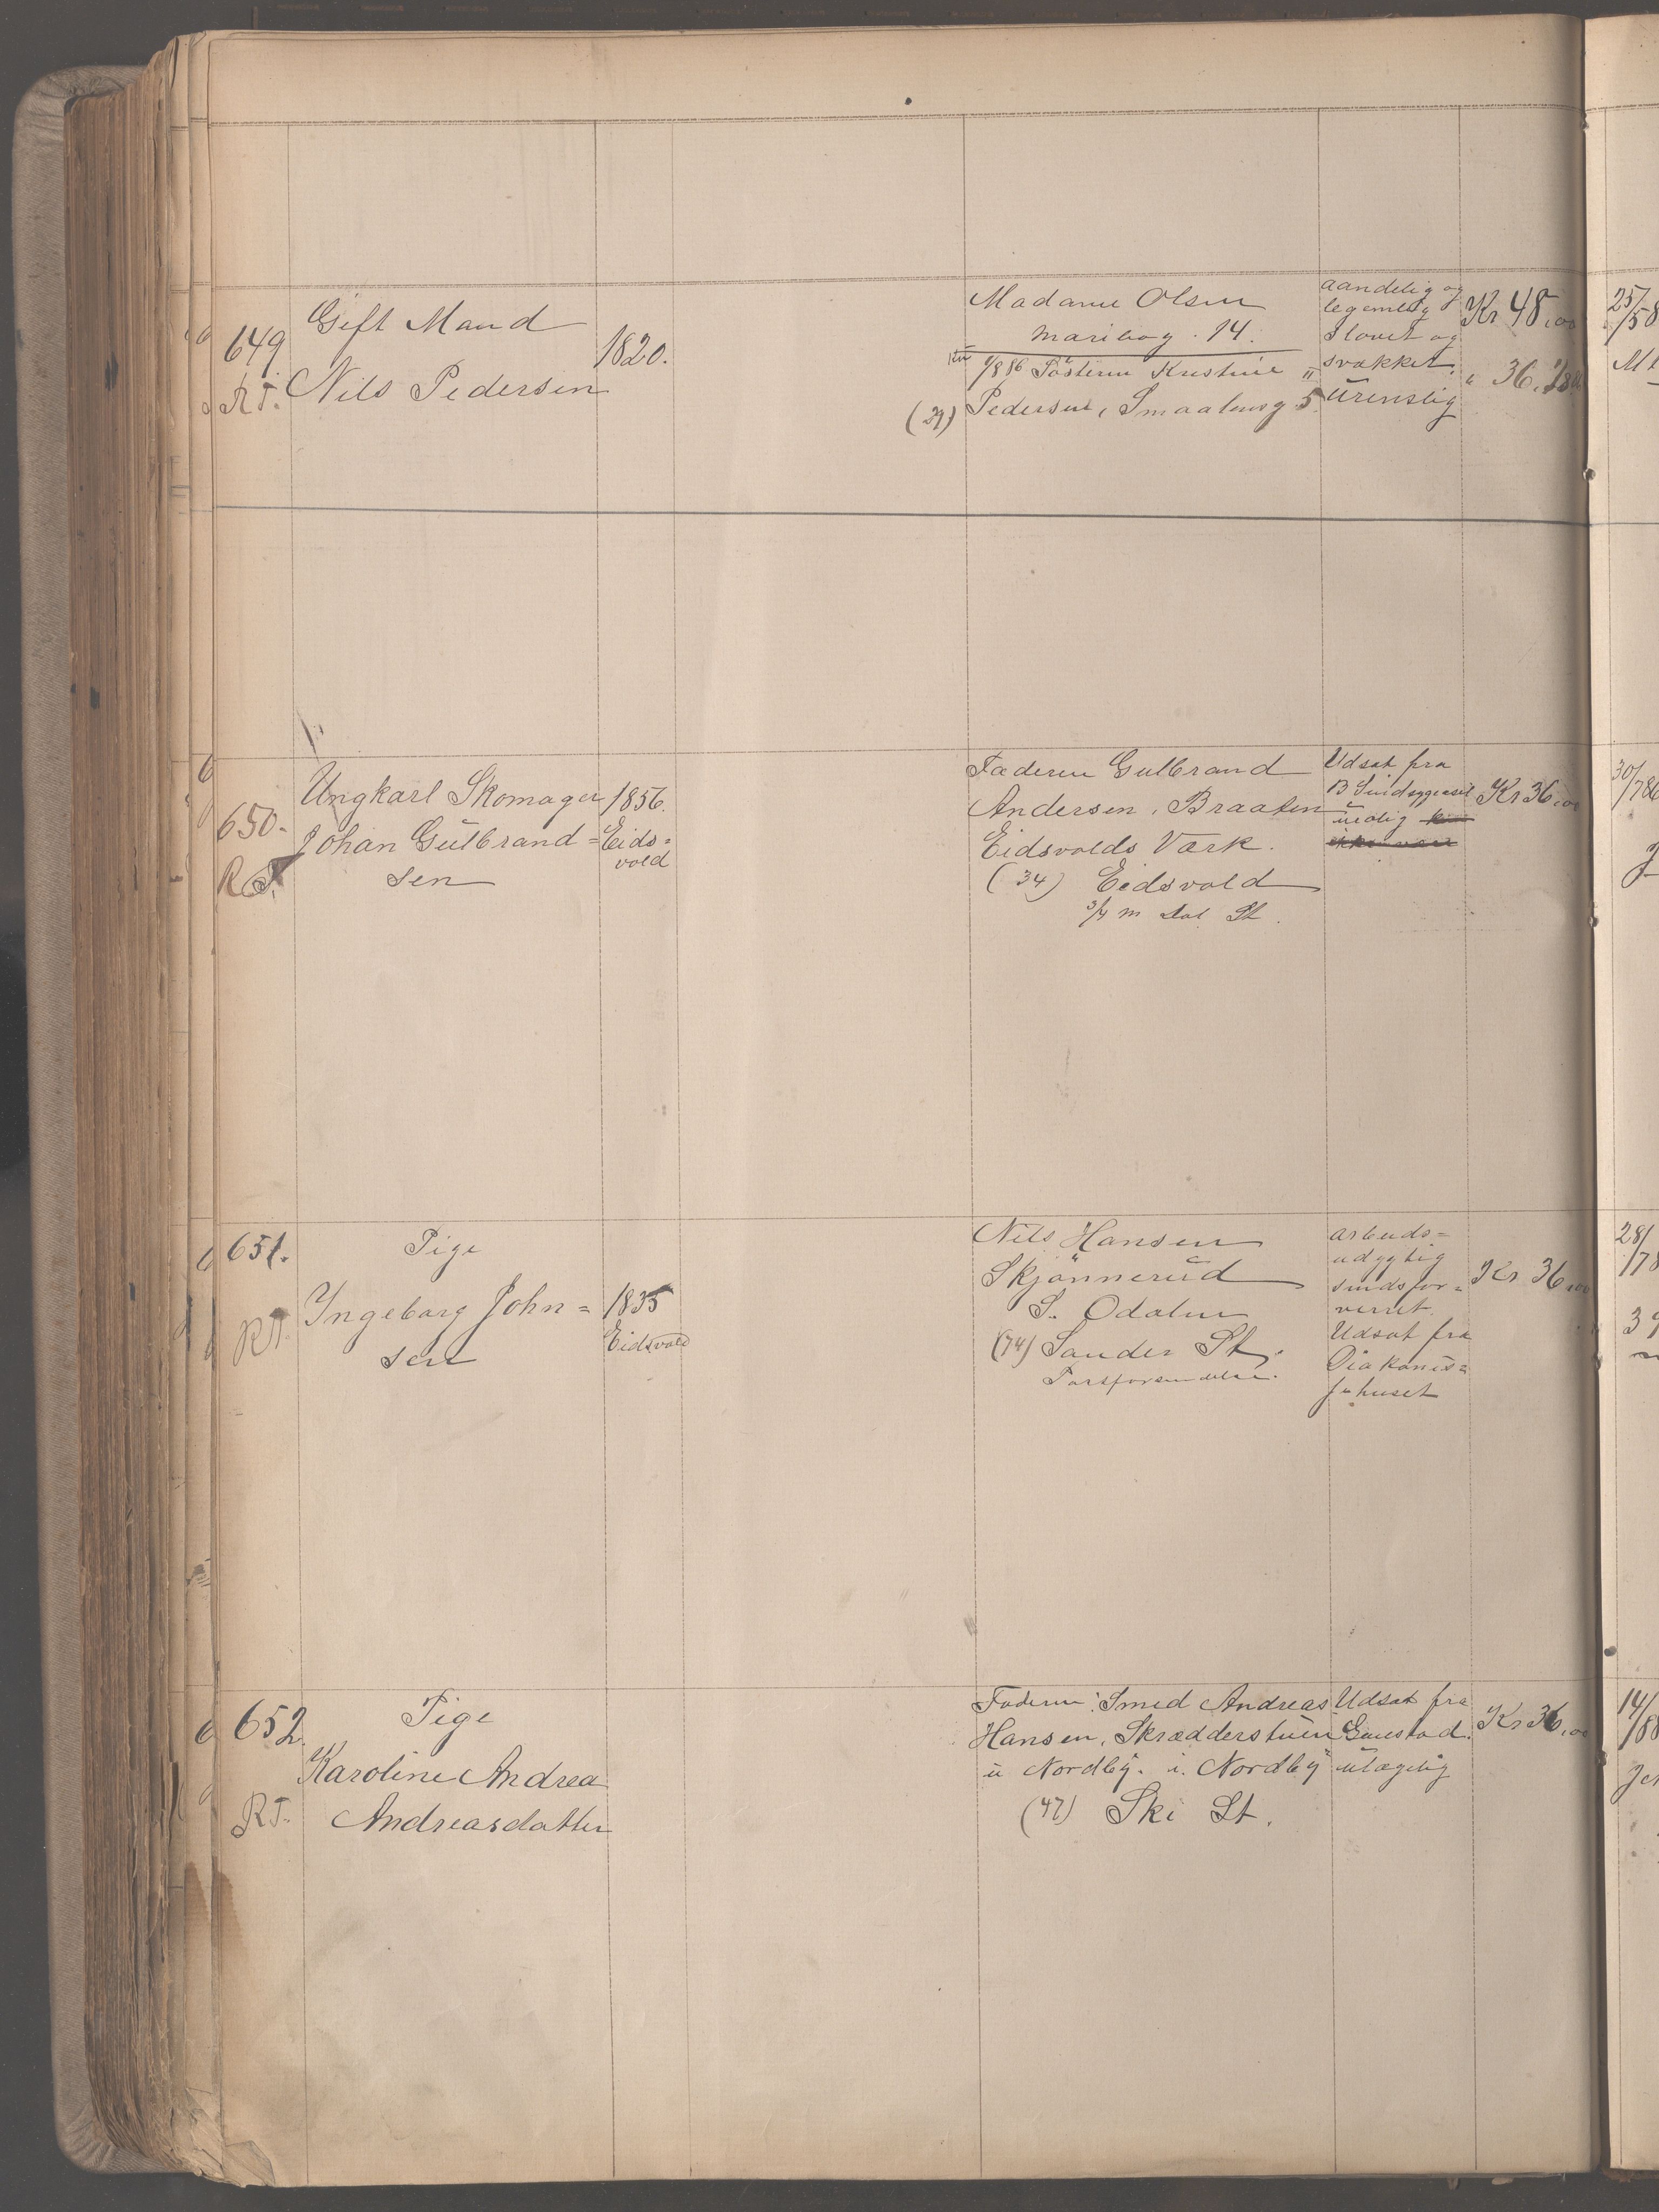 649
R.T.
Gift Mand
Nils Pedersen
1820.
Madame Olsen
Maribog. 14.
1/8 86 Söstem Kristine
Pedersen, Smaalensg 5.
(29)
aandelig og
legemlig
slövet og
svækket.
urenslig
Kr 48,00
" 36. 1/8 86
650.
R.T.
Ungkarl Skomager
Johan Gulbrand=
sen
1856.
Eids=
vold
Faderen Gulbrand
Andersen, Braaten
Eidsvolds Værk.
(34) Eidsvold
3/4 m Dal St.
Udsat fra
B Sindsygeasil
urolig
Kr 36,00
651.
R.T.
Pige
Ingeborg John=
sen
1835
Eidsvold
Nils Hansen
Skjönnerud
S. Odalen
(74) Sander St.
arbeids=
udygtig
sindsfor=
virret.
Udsat fra
Diakonis=
sehuset
Kr. 36,00
652.
R.T.
Pige
Karoline Andrea
Andreasdatter
Faderen: Smed Andreas
Hansen, Skrædderstuen
u Nordby. i. Nordby
(47) Ski St.
Udsat fra
Gaustad.
ulægelig
Kr 36,00
25/
/58
30/
/786
28/
/78
14/
/88